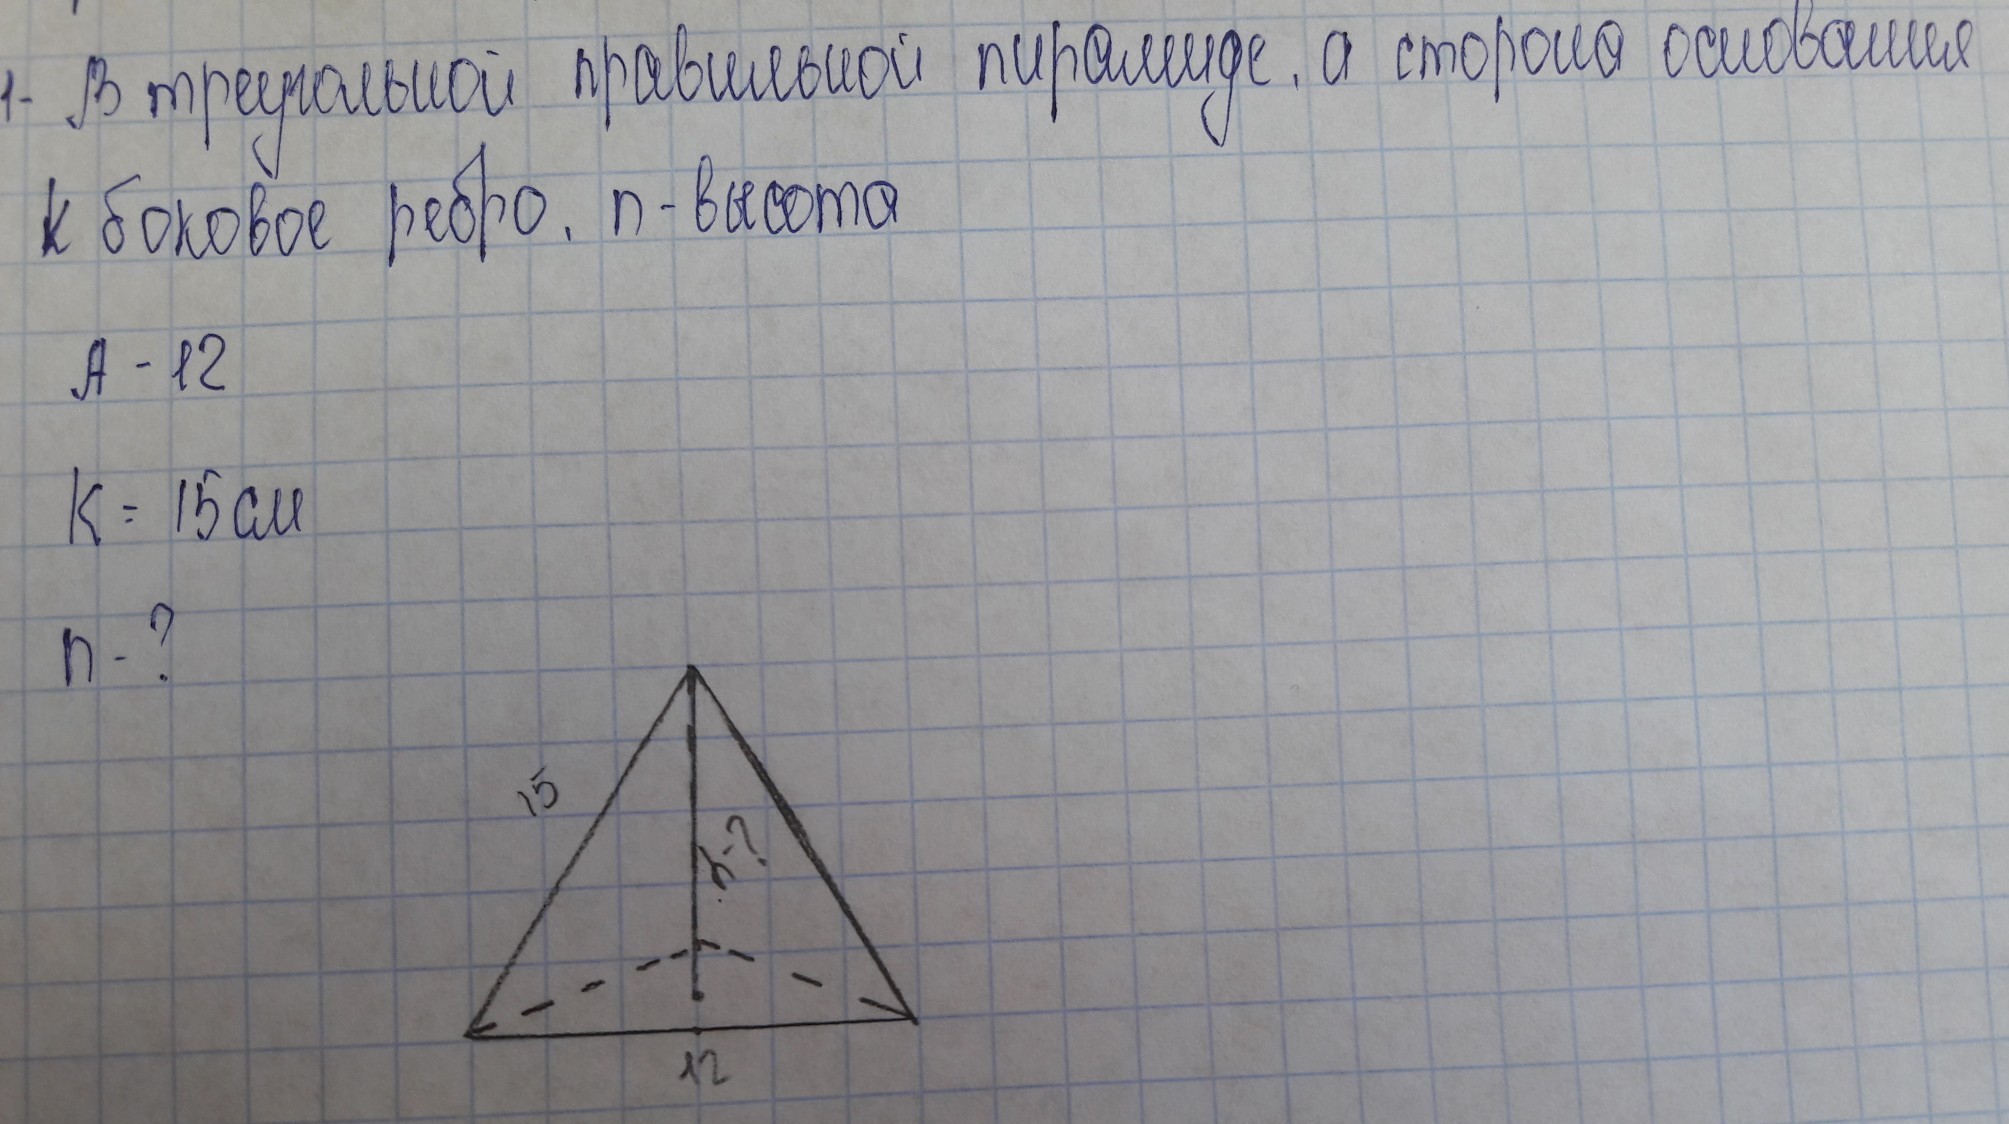 1- В треугольной правильной пирамиде. а сторона основания
к боковое ребро. n - высота
A - 12
K = 15 см
n - ?
15
h - ?
12